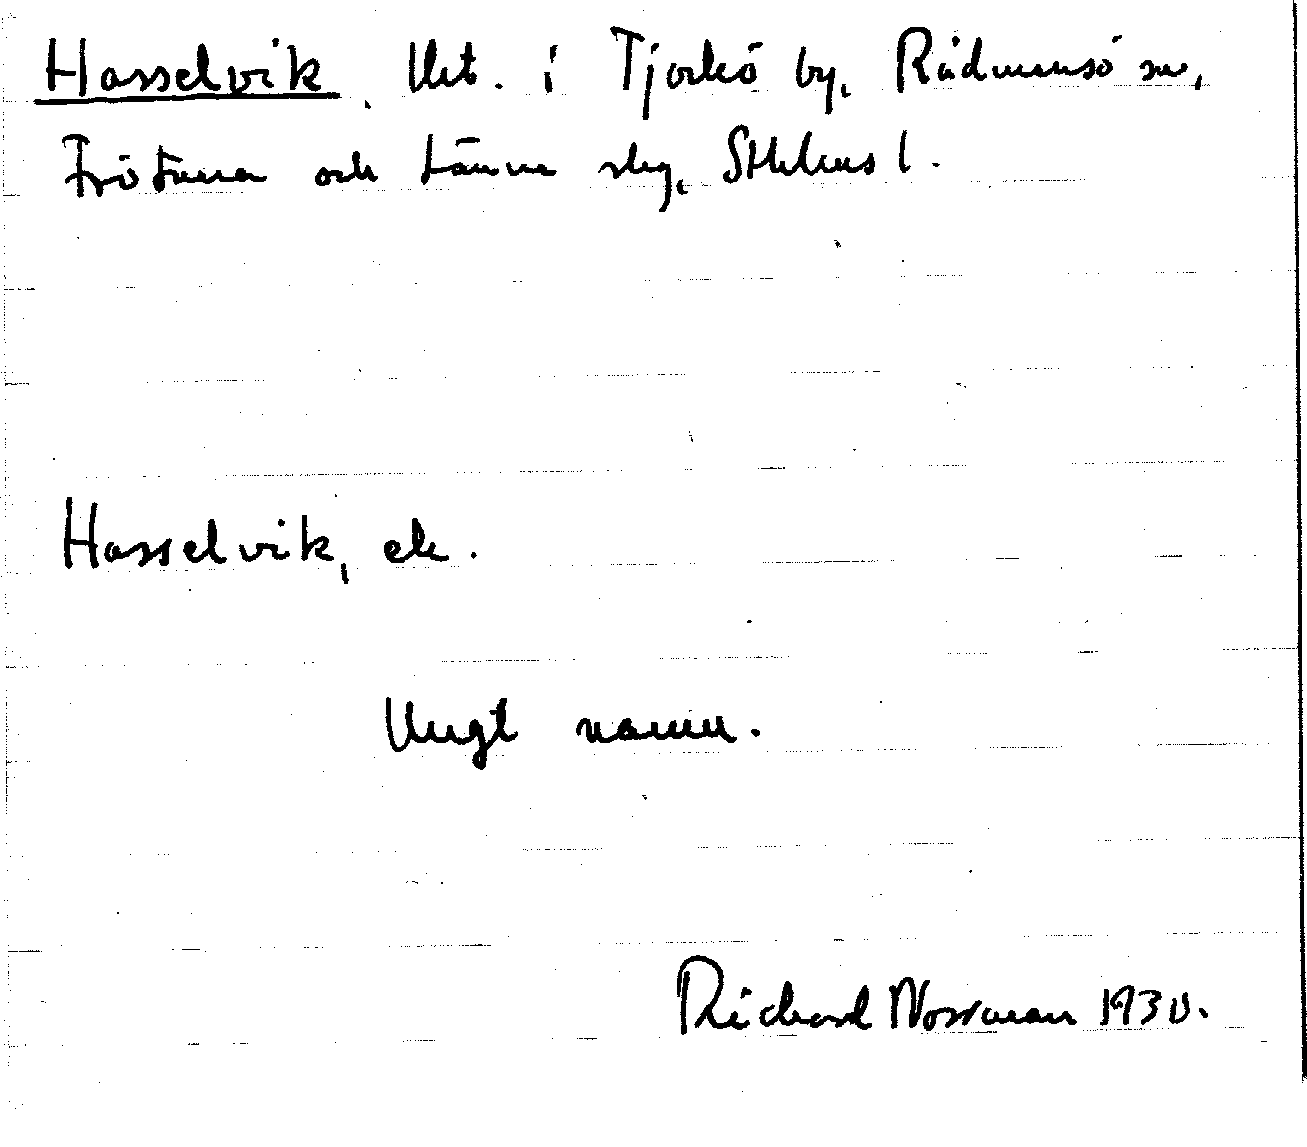 Hasselvik. Utt. i Tjorkö by, Rådmansö sn,
Frötuna och Länna slg, Sthlms l.
Hasselvik, ek.
Ungt namn.
Richard Norrman 1930.